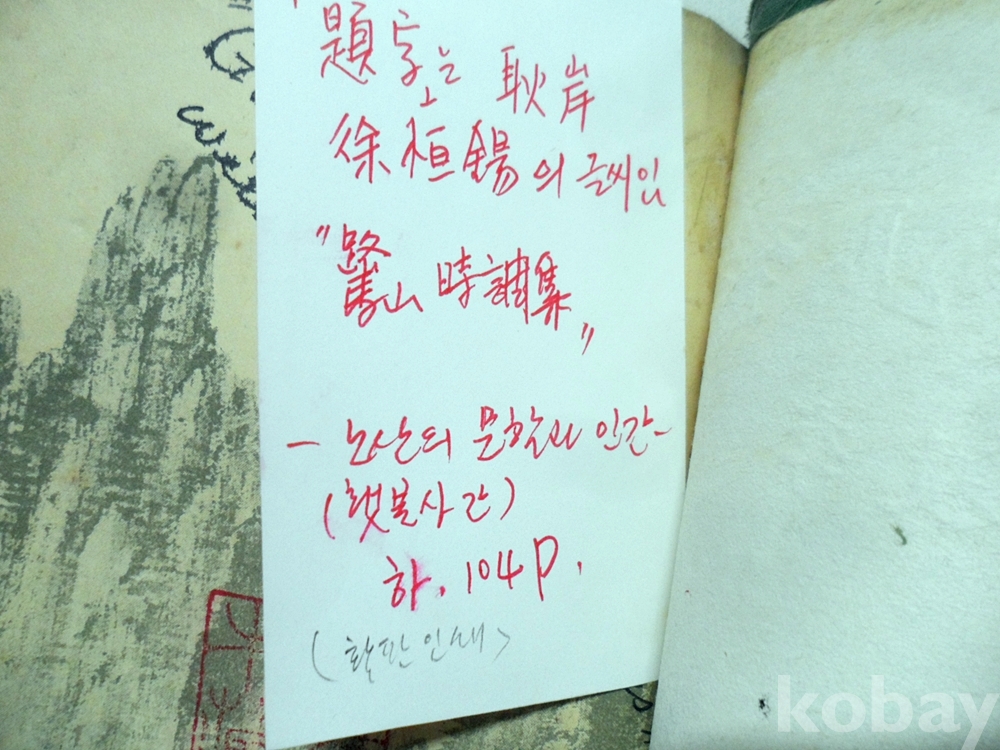 題字는 耿岸
徐桓錫의 글씨임
"鷺山 時調集"
- 노산의 문학과 인간-
(횃불사간)
하. 104P.
(활판인쇄)
kobay